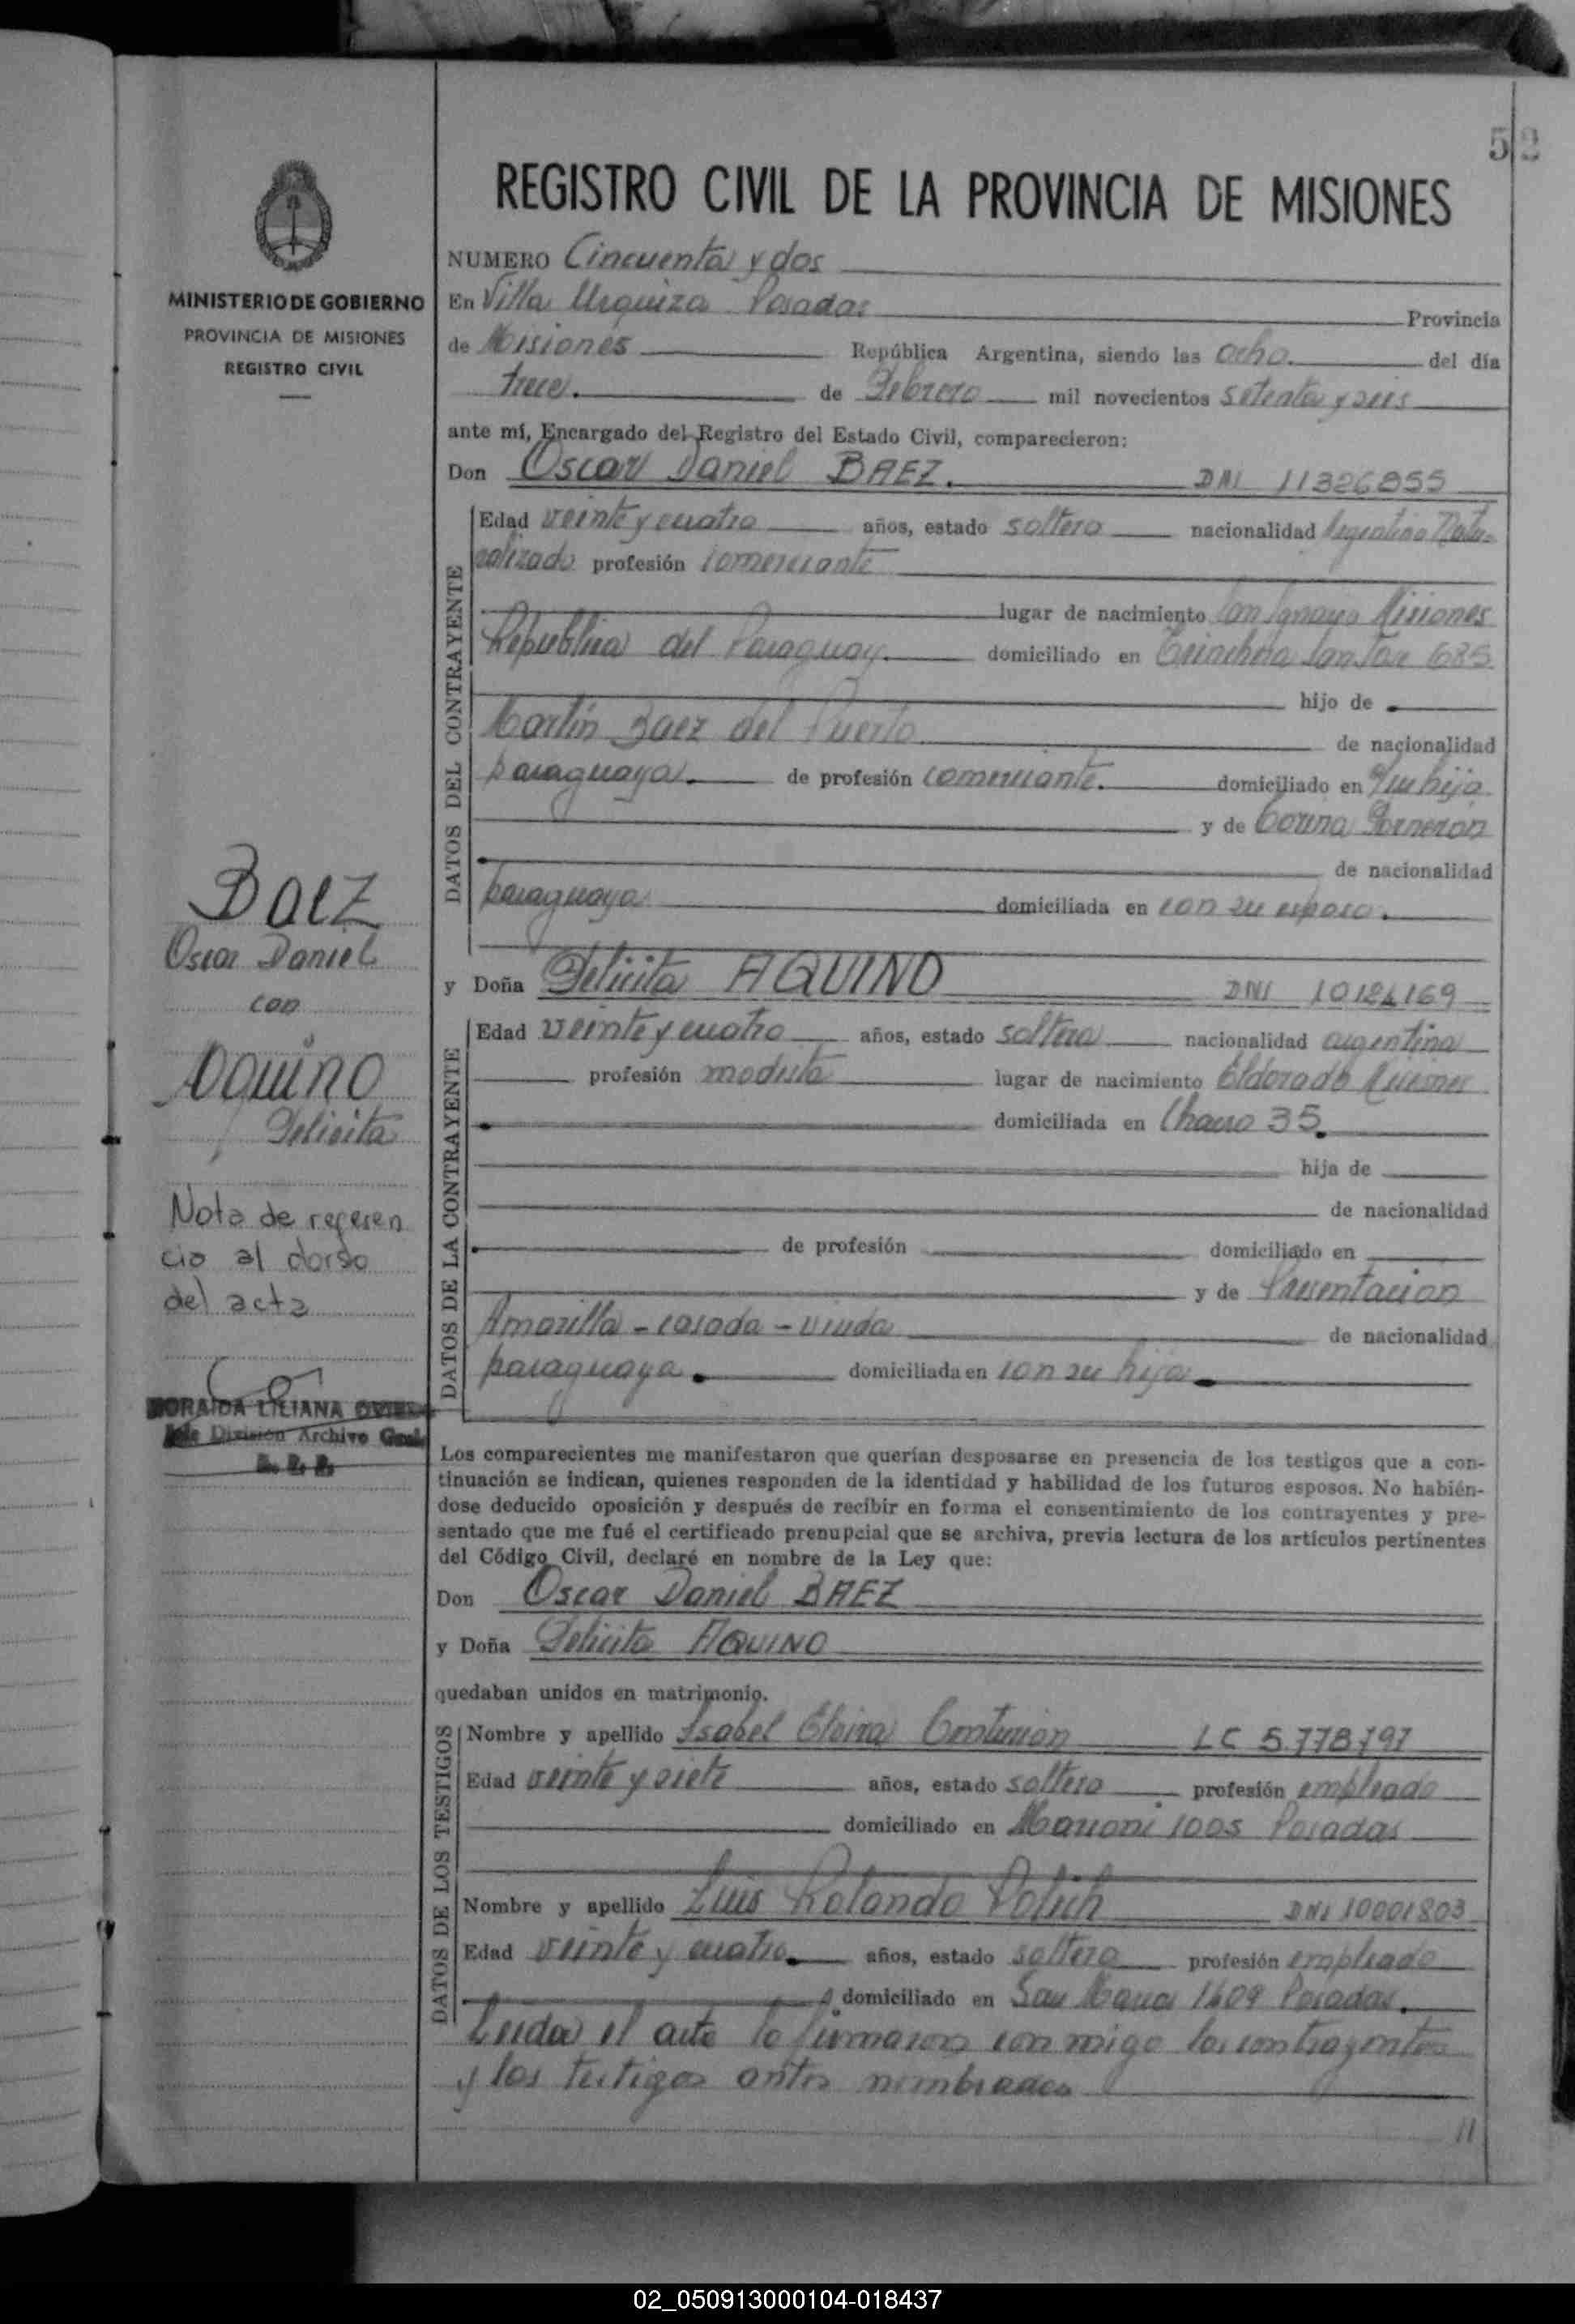 52
REGISTRO CIVIL DE LA PROVINCIA DE MISIONES
MINISTERIO DE GOBIERNO
PROVINCIA DE MISIONES
REGISTRO CIVIL
NUMERO Cincuenta y dos
En Villa Urquiza Posadas Provincia
de Misiones República Argentina, siendo las ocho. del día
trece. de Febrero mil novecientos setenta y seis
ante mí, Encargado del Registro del Estado Civil, comparecieron:
Don Oscar Daniel BAEZ. DNI 11326855
DATOS DEL CONTRAYENTE
Edad veinte y cuatro años, estado soltero nacionalidad Argentino Natu-
ralizado profesión comerciante
lugar de nacimiento San Ignacio Misiones
Republica del Paraguay. domiciliado en Trinchera San José 685
hijo de
Martín Baez del Puerto de nacionalidad
paraguaya. de profesión comerciante. domiciliado en
y de Corina
de nacionalidad
paraguaya domiciliada en con su esposo.
y Doña Felicita AQUINO DNI 10124169
DATOS DE LA CONTRAYENTE
Edad veinte y cuatro años, estado soltera nacionalidad argentina
profesión modista lugar de nacimiento Eldorado Misiones
domiciliada en Chaco 35.
hija de
de nacionalidad
de profesión domiciliado en
y de Presentacion
Amarilla - casada - viuda de nacionalidad
paraguaya. domiciliada en con su hija.
Los comparecientes me manifestaron que querían desposarse en presencia de los testigos que a con-
tinuación se indican, quienes responden de la identidad y habilidad de los futuros esposos. No habién-
dose deducido oposición y después de recibir en forma el consentimiento de los contrayentes y pre-
sentado que me fué el certificado prenupcial que se archiva, previa lectura de los artículos pertinentes
del Código Civil, declaré en nombre de la Ley que:
Don Oscar Daniel BAEZ
y Doña Felicita AQUINO
quedaban unidos en matrimonio.
DATOS DE LOS TESTIGOS
Nombre y apellido Isabel Elvira Centurion LC 5.778.797
Edad veinte y siete años, estado soltera profesión empleado
domiciliado en 1005 Posadas
Nombre y apellido Luis Rolando DNI 10001803
Edad veinte y cuatro. años, estado soltero profesión empleado
domiciliado en 1609 Posadas.
Leida el acta la firmaron con migo los contrayentes
y los testigos antes nombrados
11
Baez
Oscar Daniel
con
Aquino
Felicita
Nota de referen
cia al dorso
del acta
ZORAIDA LILIANA
Jefe División Archivo Gral.
02_050913000104-018437